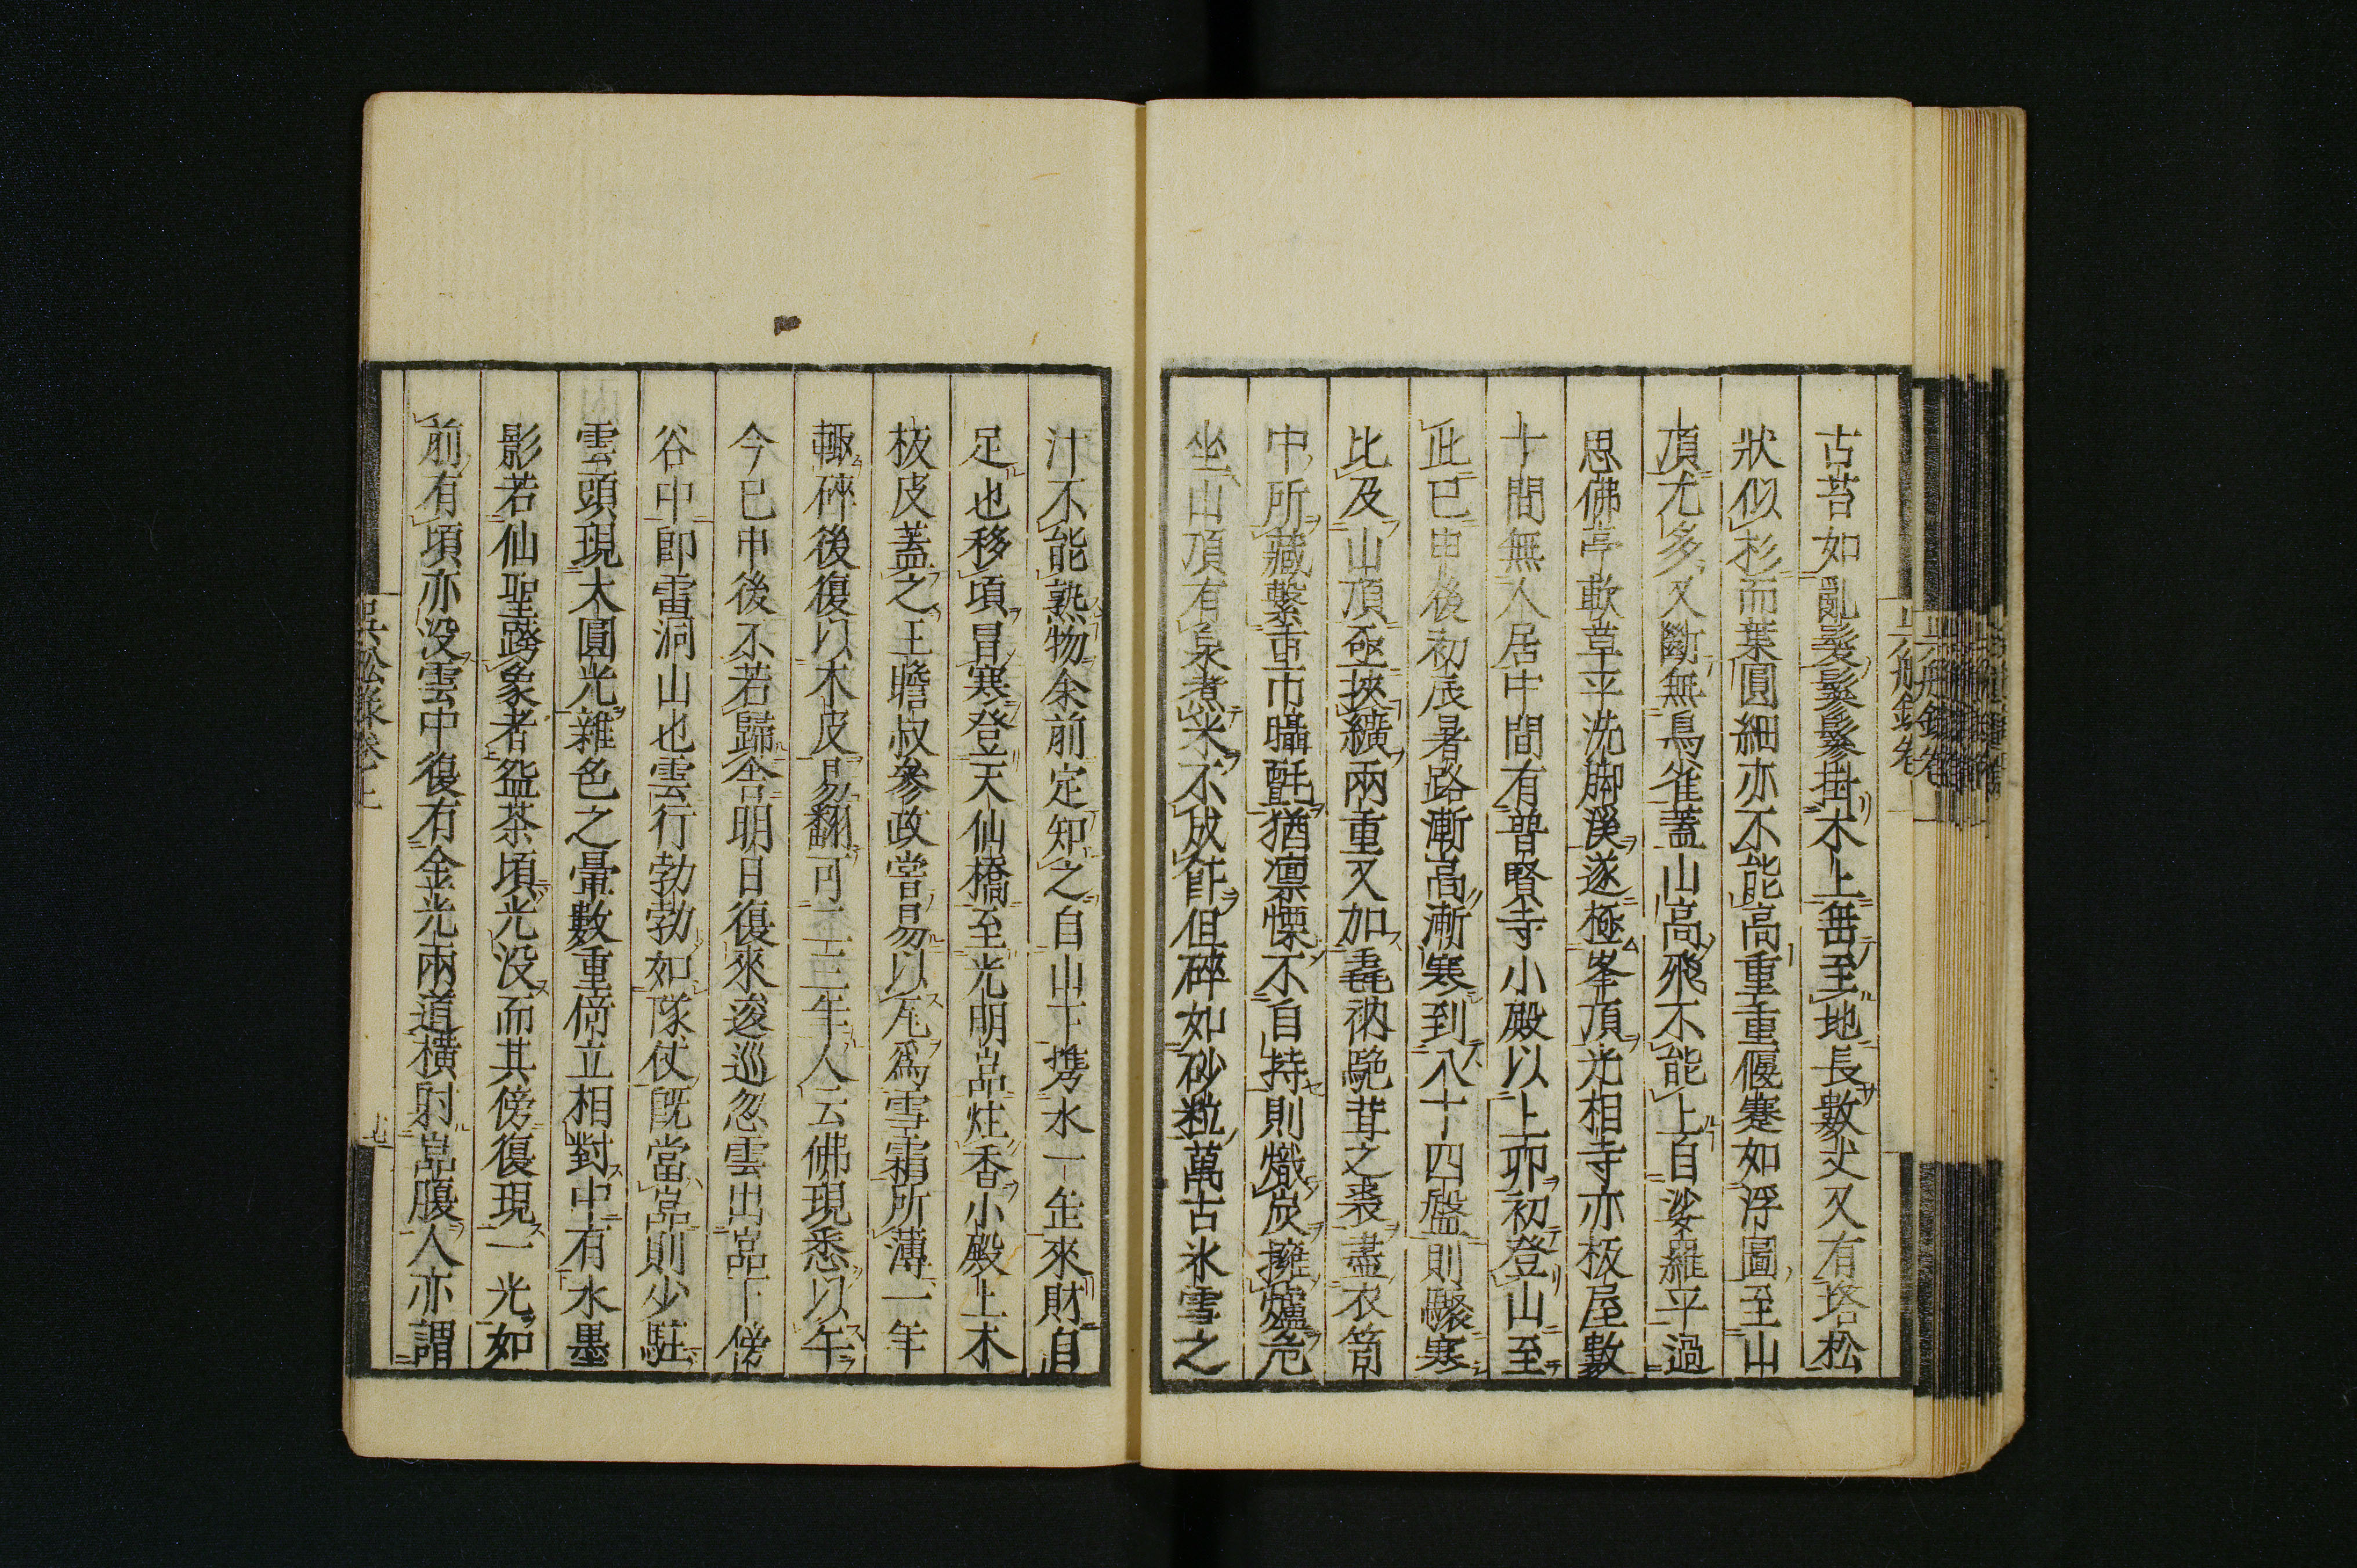 古苔如亂髮鬖鬖掛木上垂至地長數丈又有塔松
狀似杉而葉圓細亦不能高重重偃蹇如浮圖至山
頂尤多又斷無鳥雀蓋山高飛不能上自娑羅平過
思佛亭軟草平洗脚溪遂極峯頂光相寺亦板屋數
十間無人居中間有普賢寺小殿以上卯初登山至
此已申後初辰暑路漸高漸寒到八十四盤則驟寒
比及山頂亟挾纊兩重又加毳衲駞茸之裘盡衣笥
中所藏繫重巾躡氈猶凛慄不自持則熾炭擁爐危
坐山頂有泉煮米不成飰但碎如砂粒萬古氷雪之
汁不能熟物余前定知之自山下攜水一缶來財自
足也移頃冒寒登天仙橋至光明嵓炷香小殿上木
板皮蓋之王瞻叔參政嘗易以瓦爲雪霜所薄一年
輒碎後復以木皮易翻可二三年人云佛現悉以午
今已申後不若歸舍明日復來逡巡忽雲出嵓下傍
谷中卽雷洞山也雲行勃勃如隊仗旣當嵓則少駐
雲頭現大圓光雜色之暈數重倚立相對中有水墨
影若仙聖跨象者盌茶頃光没而其傍復現一光如
前有頃亦没雲中復有金光兩道橫射嵓腹人亦謂